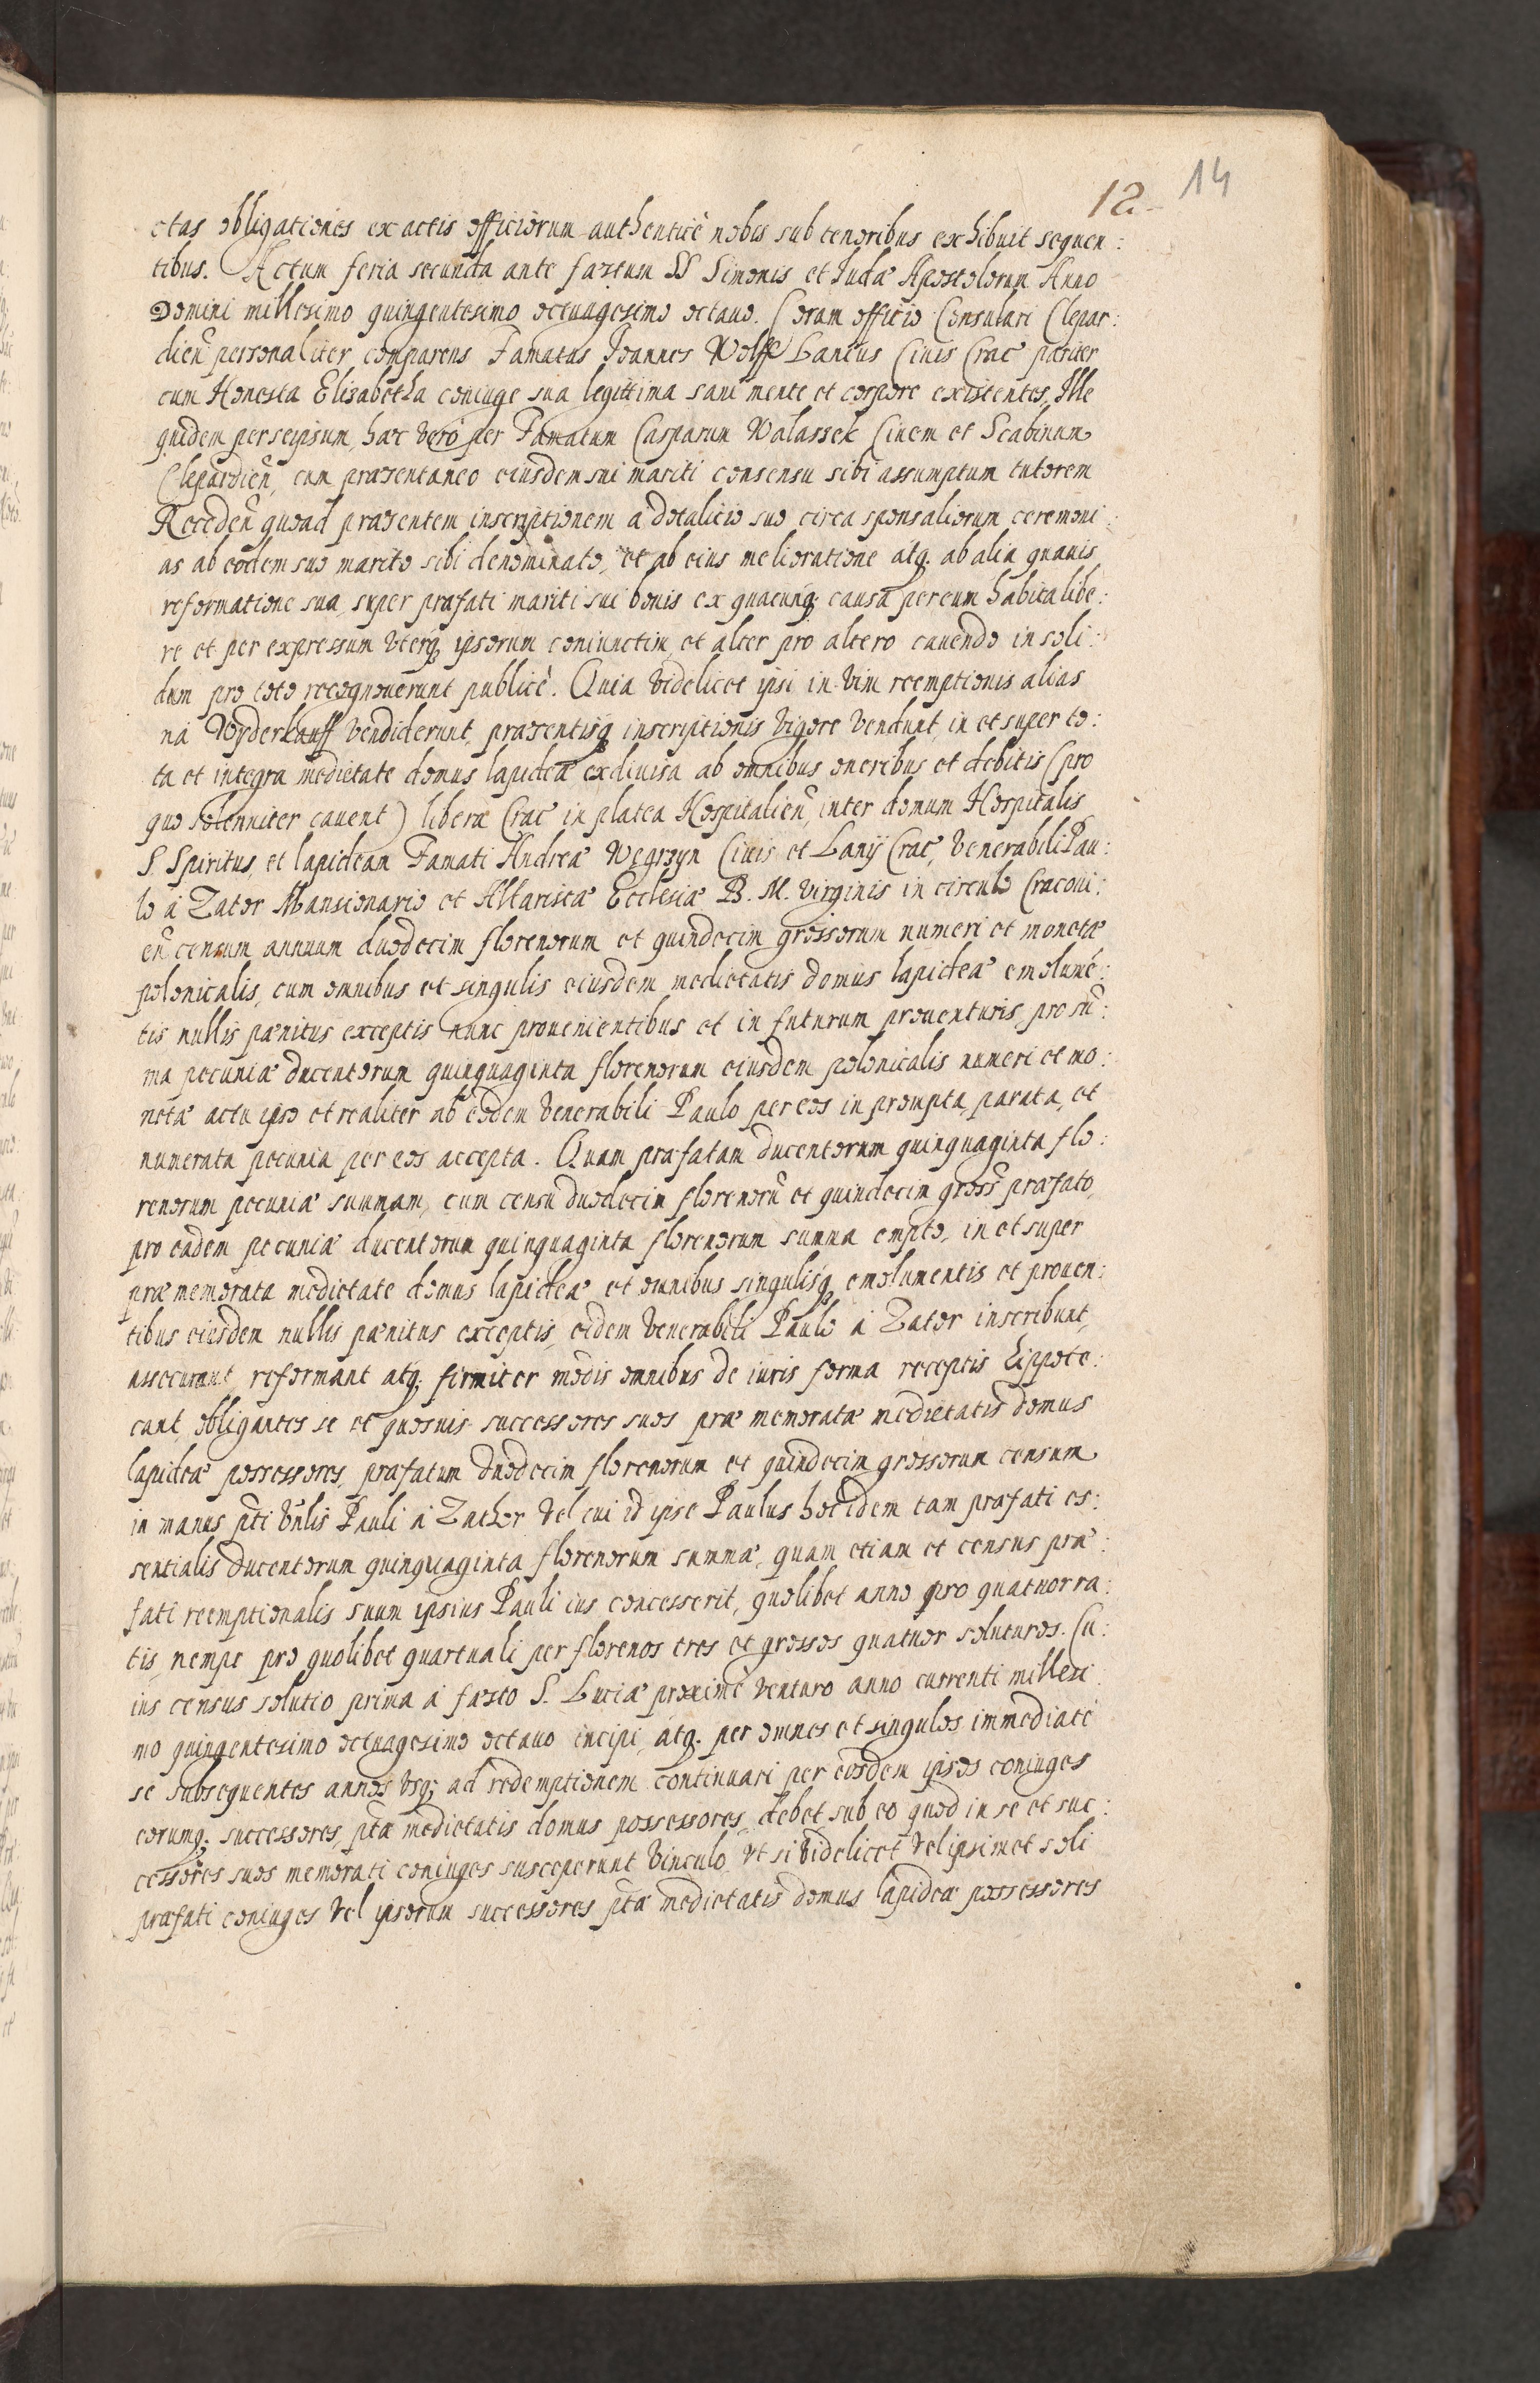 12 14
ctas obligationes ex actis officiorum authenticè nobis sub tenoribus exhibuit sequen:
tibus. Actum feria secunda ante faestum SS Simonis et Iudae Apostolorum Anno
Domini millesimo quingentesimo octuagesimo octauo. Coram officio Consulari Clepar:
dien̄ personaliter comparens Famatus Ioannes Wolff Lanius Ciuis Crac̄ pariter
cum Honesta Elisabetha coniuge sua legittima sani mente et corpore existentes, Ille
quidem per seipsum, haec verò per Famatum Casparum Walassek Ciuem et Scabinum
Clepardien̄, cum praesentaneo eiusdem sui mariti consensu sibi assumptum tutorem
Receden̄ quoad praesentem inscriptionem a dotalicio suo circa sponsaliorum ceremoni:
as ab eodem suo marito sibi denominato, et ab eius melioratione atq. ab alia quauis
reformatione sua, super praefati mariti sui bonis ex quacunq; causa per eum habita libe:
re et per expressum vterq; ipsorum coniunctim, et alter pro altero cauendo in soli:
dum pro toto recognouerunt publicè. Quia videlicet ipsi in vim reemptionis alias
ná Wyderkauff vendiderunt, praesentisq; inscriptionis vigore vendunt, in et super to:
ta et integra medietate domus lapideae exdiuisa ab omnibus oneribus et debitis (pro
quo solenniter cauent) liberae Crac̄ in platea Hospitalien̄, inter domum Hospitalis
S. Spiritus, et lapideam Famati Andreae Wegrzyn Ciuis et Lanij Crac̄, venerabili Pau:
lo à Zator Mansionario et Altaristae Ecclesiae B. M. virginis in circulo Cracoui:
en̄ censum annuum duodecim florenorum et quindecim grossorum numeri et monetae
polonicalis, cum omnibus et singulis eiusdem medietatis domus lapideae emolumē:
tis nullis paenitus exceptis nunc prouenientibus et in futurum prouenturis, pro sū:
ma pecuniae ducentorum quinquaginta florenorum eiusdem polonicalis numeri et mo:
netae actu ipso et realiter ab eodem venerabili Paulo per eos in prompta, parata, et
numerata pecunia per eos accepta. Quam praefatam ducentorum quinquaginta flo:
renorum pecuniae summam, cum censu duodecim florenorū et quindecim gross̄ praefato,
pro eadem pecuniae ducentorum quinquaginta florenorum summa empto, in et super
praememorata medietate domus lapideae et omnibus singulisq; emolumentis et prouen:
tibus eiusdem nullis paenitus exceptis, eidem venerabili Paulo à Zator inscribunt,
assecurant reformant atq. firmiter modis omnibus de iuris forma receptis hippote:
cant, obligantes se et quosuis successores suos prae memoratae medietatis domus
lapideae possessores, praefatum duodecim florenorum et quindecim grossorum censum
in manus p̄ti vn̄lis Pauli à Zathor vel cui id ipse Paulus hoc idem tam praefati es:
sentialis ducentorum quinquaginta florenorum summae, quam etiam et census prae:
fati reemptionalis suum ipsius Pauli ius concesserit, quolibet anno pro quatuor ra:
tis, nempe pro quolibet quartuali per florenos tres et grossos quatuor soluturos. Cu:
ius census solutio prima à faesto S. Luciae proximè venturo anno currenti millesi:
mo quingentesimo octuagesimo octauo incipi, atq. per omnes et singulos immediatè
se subsequentes annos vsq; ad redemptionem continuari per eosdem ipsos coniuges
eorumq. successores, p̄tae medietatis domus possessores, debet, sub eo quod in se et suc:
cessores suos memorati coniuges susceperunt vinculo. vt si videlicet vel ipsimet soli
praefati coniuges vel ipsorum successores p̄tae medietatis domus lapideae possessores